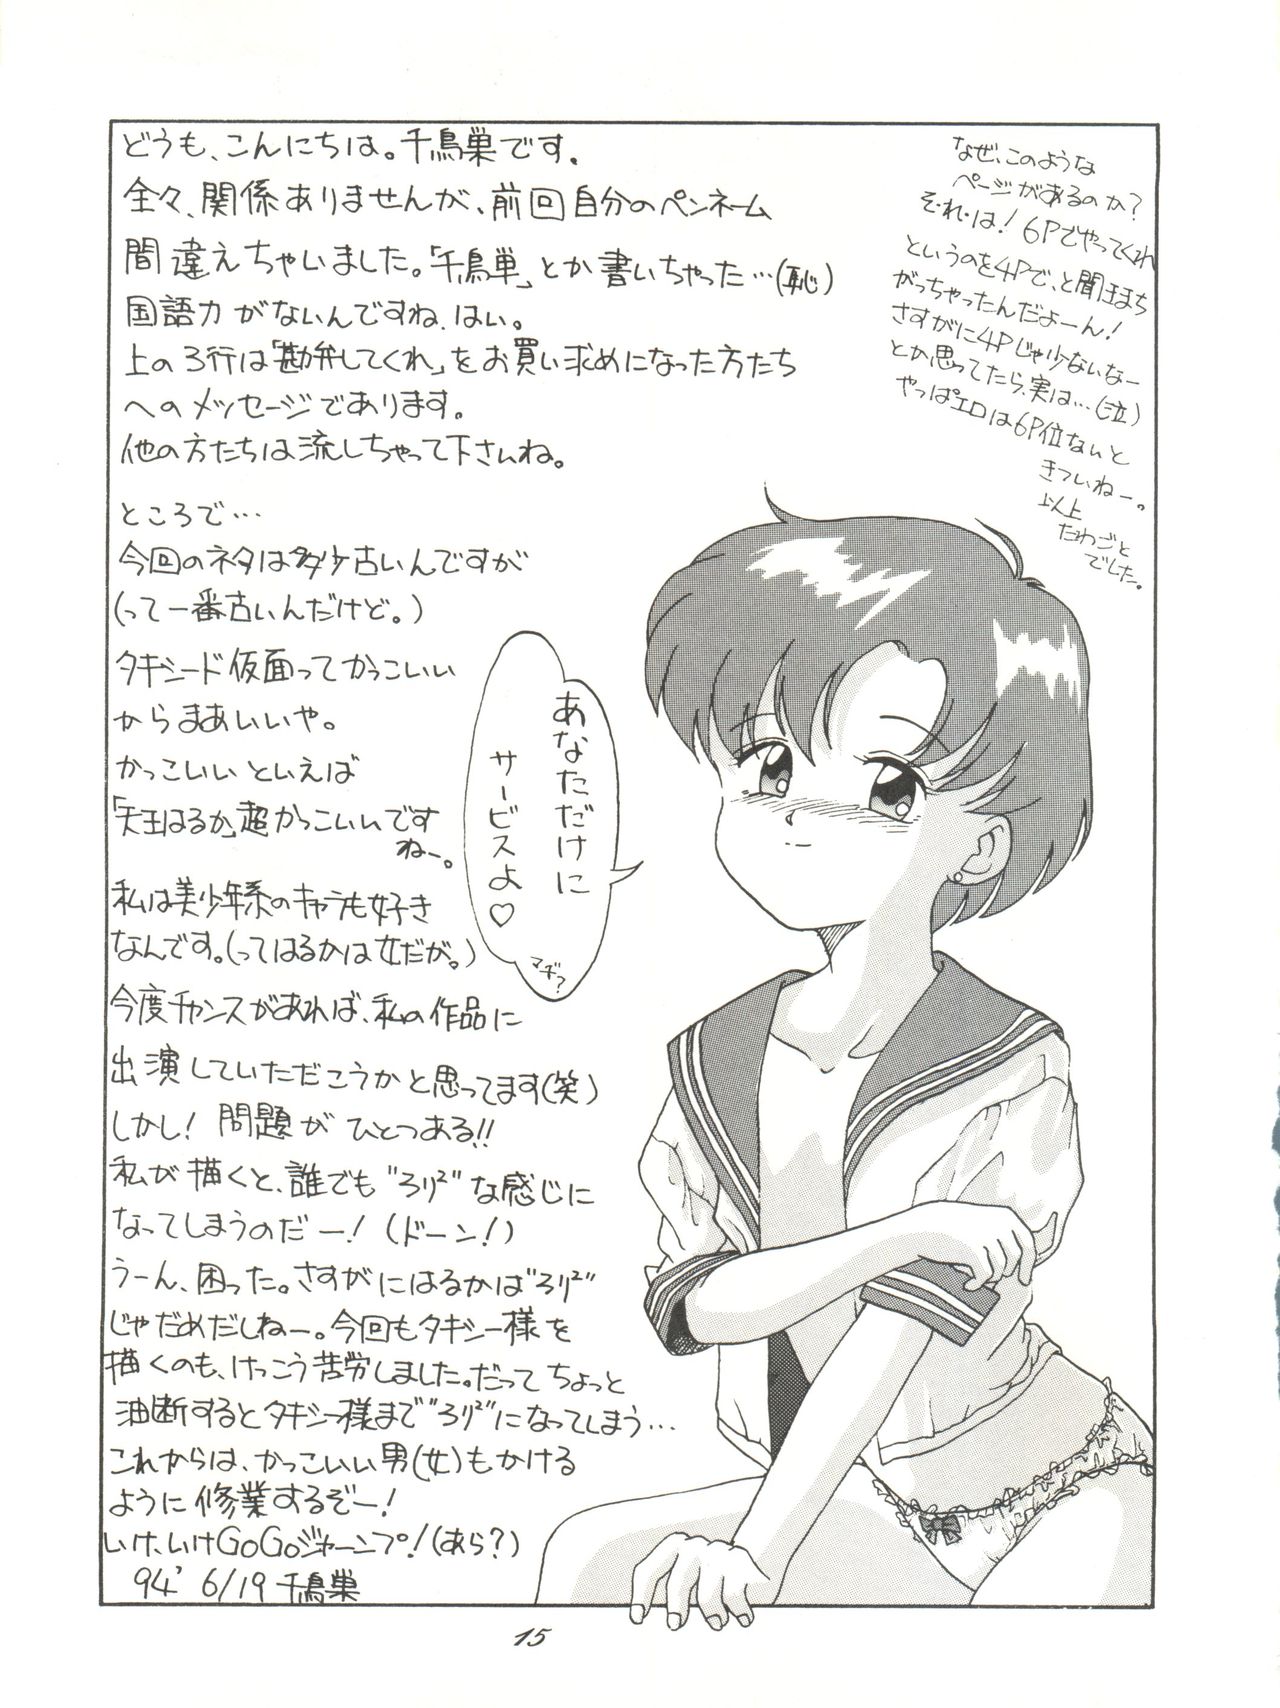 どうも、こんにちは。千鳥巣です。
全々、関係ありませんが、前回自分のペンネーム
間違えちゃいました。「千鳥単」とか書いちゃった…(恥)
国語力がないんですね、はい。
上の3行は「勘弁してくれ」をお買い求めになった方たち
へのメッセージであります。
他の方たちは流しちゃって下さいね。
ところで…
今回のネタは多少古いんですが
(って一番古いんだけど。)
タキシード仮面ってかっこいい
からまあいいや。
かっこいいといえば
「天王はるか」超かっこいいです
ねー。
私は美少年系のキャラも好き
なんです。(ってはるかは女だが。)
今度チャンスがあれば、私の作品に
出演していただこうかと思ってます(笑)
しかし!問題がひとつある!!
私が描くと、誰でも"ろり²"な感じに
なってしまうのだー!(ドーン!)
うーん、困った。さすがにはるかは"ろり²"
じゃだめだしねー。今回もタキシー様を
描くのも、けっこう苦労しました。だってちょっと
油断するとタキシー様まで"ろり²"になってしまう…
これからは、かっこいい男(女)もかける
ように修業するぞー!
いけ、いけGoGoジャーンプ!(あら?)
94' 6/19 千鳥巣
なぜ、このような
ページがあるのか?
そ・れ・は!6Pでやってくれ
というのを4Pで、と聞きまち
がっちゃったんだよーん!
さすがに4Pじゃ少ないなー
とか思ってたら、実は…(泣)
やっぱエロは6P位ないと
きついねー。
以上
たわごと
でした。
あなただけに
サービスよ♡
マヂ?
15